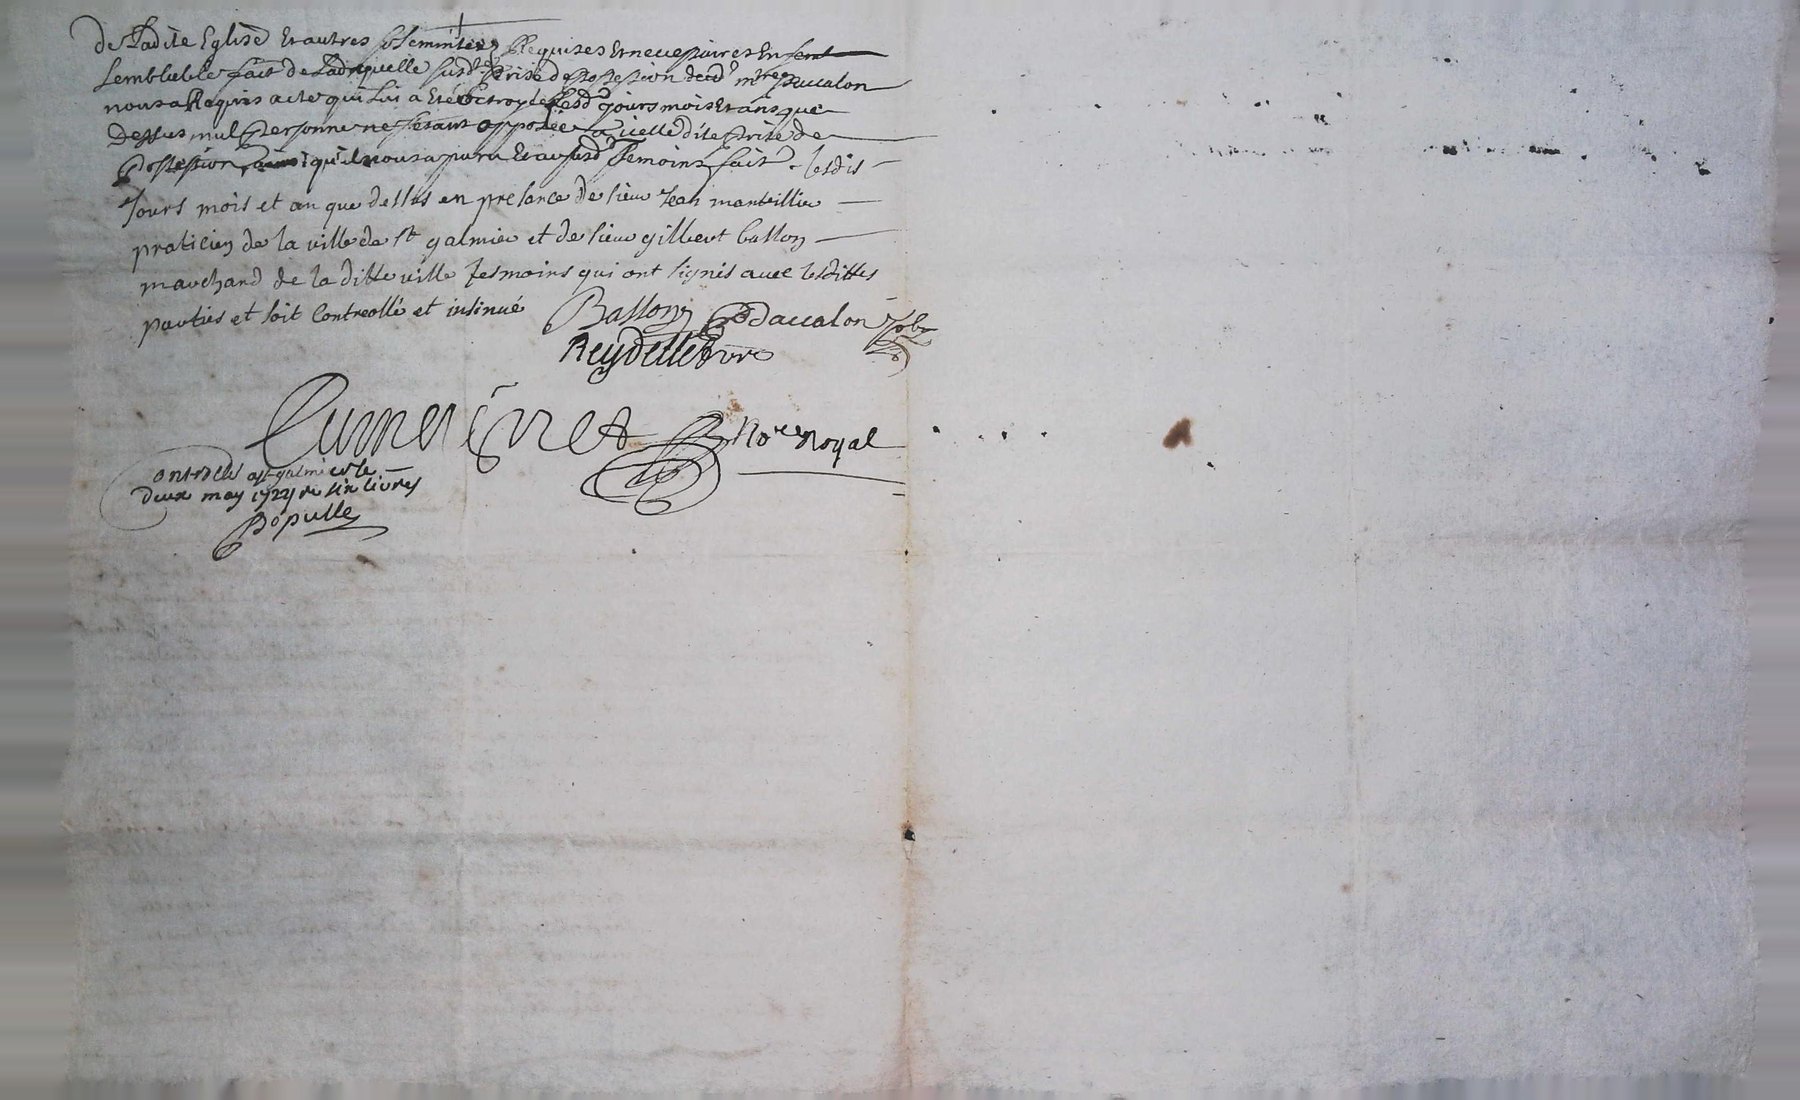 de Ladite Eglise Et autres solemnitez Requises Et necessaires En
semblable fait de Ladte quelle susdte prise de possession ledt mtre Daccalon
nous a Requis acte qui Lui a Eté octroyé Lesd jours mois Et ans que
dessus, nul personne ne sestant opposée a icelle dite prise de
possession, ainsi qu'il nous a paru Et ausd Temoins fait Lesdis
Jours mois et an que dessus en presance de sieur Jean manteillier
praticien de la ville de st galmier et de sieur gilbert basson
marchand de la ditte ville tesmoins qui ont signés avec lesdittes
parties et soit Controllé et insinué
Basson Daccalon
Reydellet
No.re Royal
Controllé a st galmier le
deux may 1722 six livres
Populle